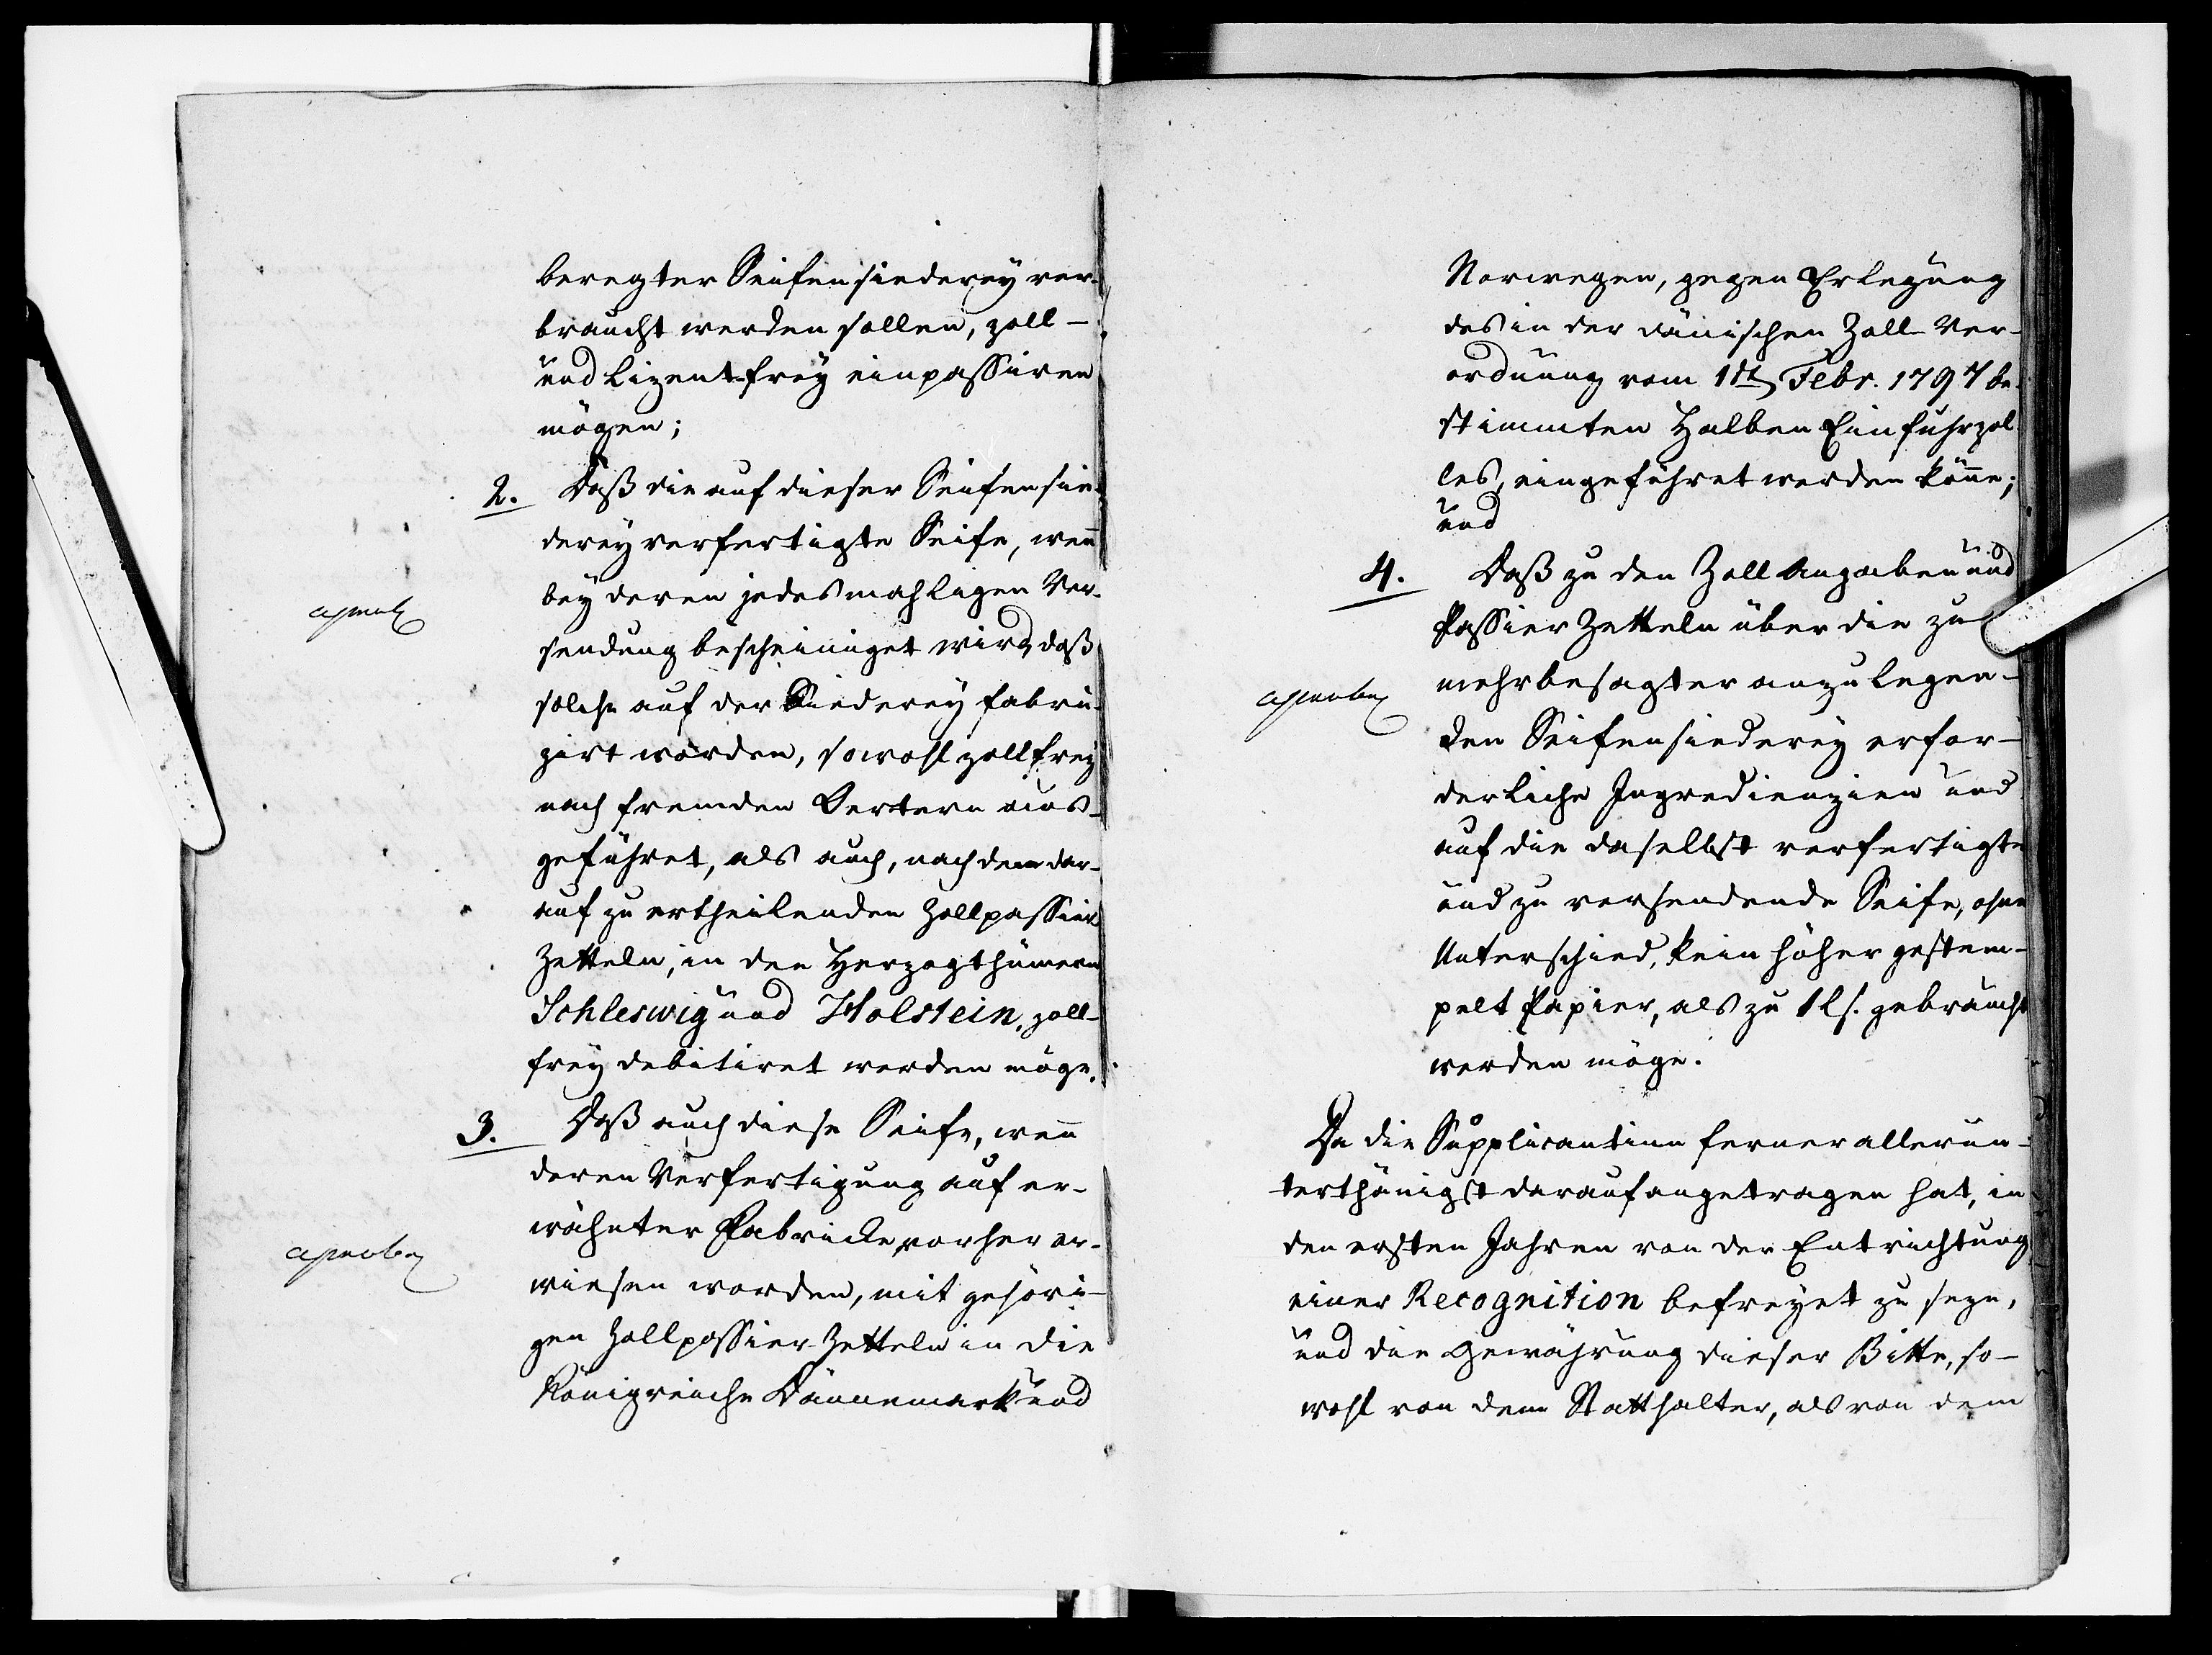 beregter Seifensiederey ver-
braucht werden sollen, zoll-
und lizentfrey einpassiren
mögen;
2. Daß die auf dieser Seifensie-
derey verfertigte Seife, wen̄
bey deren jedesmahligen Ver-
sendung bescheiniget wird, daß
solche auf der Siederey fabri-
zirt worden, sowohl zollfrey
nach fremden Oertern aus-
geführet, als auch, nach dem dar-
auf zu ertheilenden Zollpassier
Zetteln, in den Herzogthümern
Schleswig und Holstein, zoll-
frey debitiret werden möge.
3. Daß auch diese Seife, wen̄
deren Verfertigung auf er-
wähnter Fabricke vorher er-
wiesen worden, mit gehöri-
gen Zollpassier Zetteln in die
Königreiche Dännemark und
Norwegen, gegen Erlegung
des in der dänischen Zoll-Ver-
ordnung vom 1st Febr. 1797 be-
stimmten halben Einfuhrzol-
les, eingeführet werden kön̄e;
und
4. Daß zu den Zoll Angaben und
Passier Zetteln über die zu
mehrbesagter anzulegen-
den Seifensiederey erfor-
derliche Ingredienzien und
auf die daselbst verfertigte
und zu versendende Seife, ohne
Unterschied, kein höher gestem-
pelt Papier, als zu 1 ls. gebraucht
werden möge.
Da die Supplicantinn ferner allerun-
terthänigst darauf angetragen hat, in
den ersten Jahren von der Entrichtung
einer Recognition befreyet zu seyn,
und die Gewährung dieser Bitte, so-
wohl von dem Statthalter, als von dem